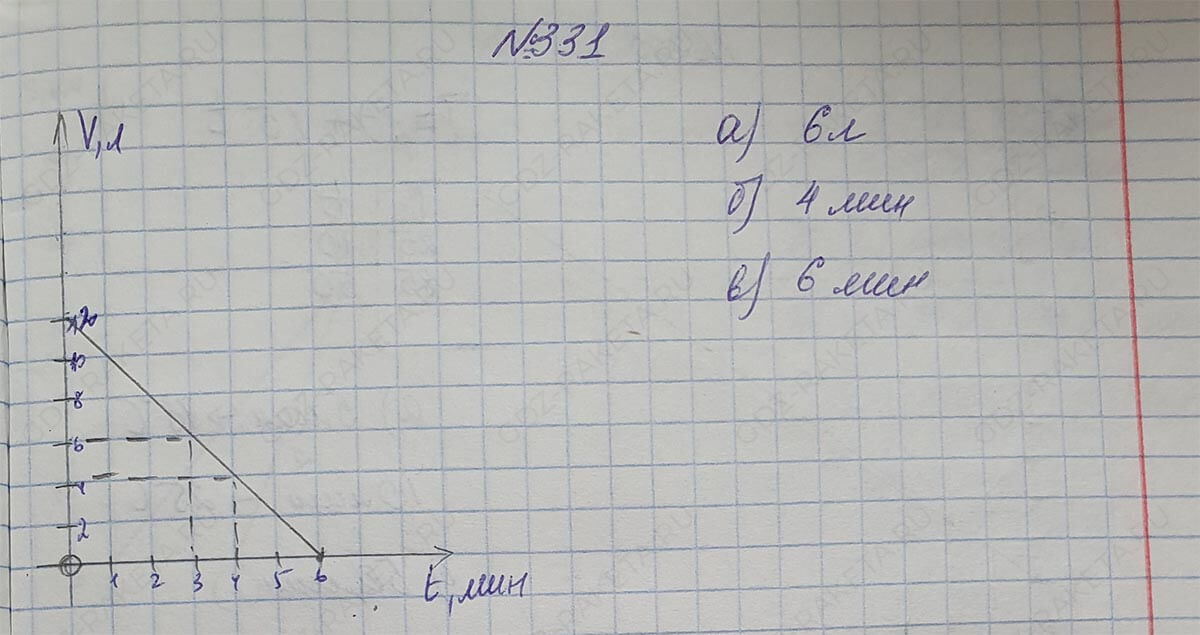 №331
V, л
а) 6л
б) 4 мин
в) 6 мин
12
10
8
6
4
2
0
1 2 3 4 5 6
t, мин
GDZ-RAKETA.RU